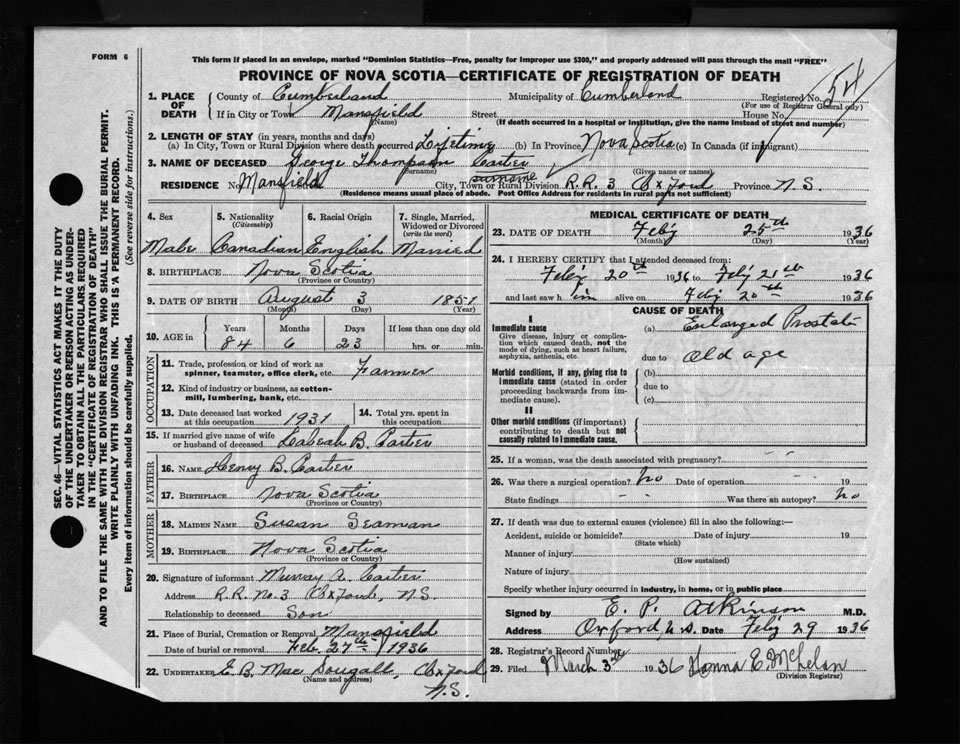 FORM 6
This form if placed in an envelope, marked "Dominion Statistics—Free, penalty for improper use $300," and properly addressed will pass through the mail "FREE"
PROVINCE OF NOVA SCOTIA—CERTIFICATE OF REGISTRATION OF DEATH
1. PLACE OF DEATH County of Cumberland Municipality of Cumberland Registered No. 54
(For use of Registrar General only)
If in City or Town Mansfield Street House No.
(Name) (If death occurred in a hospital or institution, give the name instead of street and number)
2. LENGTH OF STAY (in years, months and days)
(a) In City, Town or Rural Division where death occurred Lifetime (b) In Province Nova Scotia (c) In Canada (if immigrant)
3. NAME OF DECEASED George Thompson Carter
(Surname) surname (Given name or names)
RESIDENCE No. Mansfield City, Town or Rural Division R.R. 3 Oxford Province N.S.
(Residence means usual place of abode. Post Office Address for residents in rural parts not sufficient)
4. Sex
Male
5. Nationality
(Citizenship)
Canadian
6. Racial Origin
English
7. Single, Married, Widowed or Divorced
(write the word)
Married
8. BIRTHPLACE Nova Scotia
(Province or Country)
9. DATE OF BIRTH August 3 1851
(Month) (Day) (Year)
10. AGE in Years Months Days If less than one day old
84 6 23 hrs. or min.
OCCUPATION
11. Trade, profession or kind of work as
spinner, teamster, office clerk, etc. Farmer
12. Kind of industry or business, as cotton-
mill, lumbering, bank, etc.
13. Date deceased last worked
at this occupation 1931
14. Total yrs. spent in
this occupation
15. If married give name of wife
or husband of deceased B. Carter
FATHER
16. NAME Henry B. Carter
17. BIRTHPLACE Nova Scotia
(Province or Country)
MOTHER
18. MAIDEN NAME Susan Seaman
19. BIRTHPLACE Nova Scotia
(Province or Country)
20. Signature of informant Murray A. Carter
Address R.R. No. 3 Oxford, N.S.
Relationship to deceased Son
21. Place of Burial, Cremation or Removal Mansfield
Date of burial or removal Feb. 27th 1936
22. UNDERTAKER E. B. Mac Dougall, Oxford
(Name and address)
N.S.
MEDICAL CERTIFICATE OF DEATH
23. DATE OF DEATH Feb'y 25th 1936
(Month) (Day) (Year)
24. I HEREBY CERTIFY that I attended deceased from:
Feb'y 20th 1936 to Feb'y 21st 1936
and last saw h im alive on Feb'y 20th 1936
CAUSE OF DEATH
I
Immediate cause
Give disease, injury or complica-
tion which caused death, not the
mode of dying, such as heart failure,
asphyxia, asthenia, etc.
(a) Enlarged Prostate
due to old age
Morbid conditions, if any, giving rise to
immediate cause (stated in order
proceeding backwards from im-
mediate cause).
(b)
due to
(c)
II
Other morbid conditions (if important)
contributing to death but not
causally related to immediate cause.
25. If a woman, was the death associated with pregnancy? - -
26. Was there a surgical operation? no Date of operation - - 19
State findings - - Was there an autopsy? no
27. If death was due to external causes (violence) fill in also the following:—
Accident, suicide or homicide? Date of injury 19
(State which)
Manner of injury
(How sustained)
Nature of injury
Specify whether injury occurred in industry, in home, or in public place
Signed by E. P. Atkinson M.D.
Address Oxford N.S. Date Feb'y 29 1936
28. Registrar's Record Number
29. Filed March 3rd 1936
(Division Registrar)
SEC. 46—VITAL STATISTICS ACT MAKES IT THE DUTY
OF THE UNDERTAKER OR PERSON ACTING AS UNDER-
TAKER TO OBTAIN ALL THE PARTICULARS REQUIRED
IN THE "CERTIFICATE OF REGISTRATION OF DEATH"
AND TO FILE THE SAME WITH THE DIVISION REGISTRAR WHO SHALL ISSUE THE BURIAL PERMIT.
WRITE PLAINLY WITH UNFADING INK. THIS IS A PERMANENT RECORD.
Every item of information should be carefully supplied. (See reverse side for instructions.)